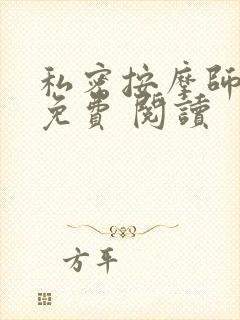 私密按摩師
免費 閱讀
方平